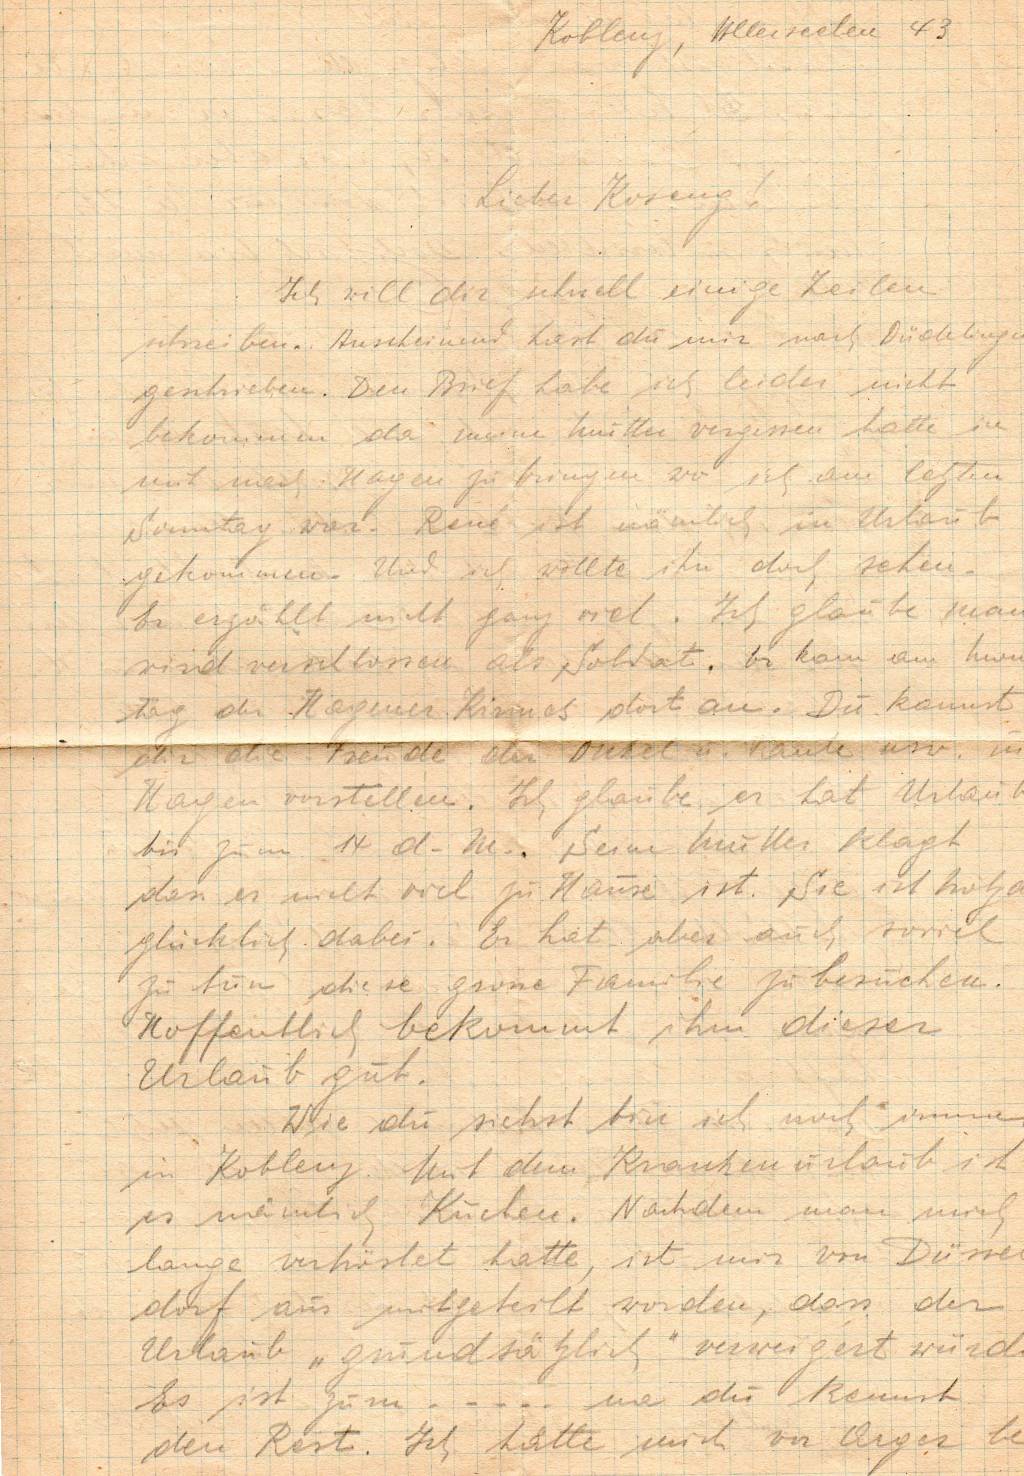 Koblenz, Allerseelen 43
Lieber Koseng!
Ich will dir schnell einige Zeilen
schreiben. Anscheinend hast du mir nach Düdelingen
geschrieben. Den Brief habe ich leider nicht
bekommen da meine Mutter vergessen hatte in
mit nach Hagen zu bringen wo ich am letzten
Sonntag war. René ist nämlich in Urlaub
gekommen. Und ich wollte ihn doch sehen.
Er erzählt nicht ganz viel. Ich glaube man
wird verschlossen als Soldat. Er kam am
tag der Hagener Kirmes dort an. Du kannst
dir die Freude der Onkel u. Tante usw. in
Hagen vorstellen. Ich glaube er hat Urlaub
bis zum 14 d. M.. Seine Mutter klagt
dass er nicht viel zu Hause ist. Sie ist trotzd
glücklich dabei. Er hat aber auch soviel
zu tun diese grosse Familie zu besuchen.
Hoffentlich bekommt ihm dieser
Urlaub gut.
Wie du siehst bin ich noch immer
in Koblenz. Mit dem Krankenurlaub ist
es nämlich Kuchen. Nachdem man mich
lange vertröstet hatte, ist mir von Düssel
dorf aus mitgeteilt worden, dass der
Urlaub „grundsätzlich" verweigert würde
Es ist zum - - - - - na du kennst
den Rest. Ich hätte mich vor Ärger be